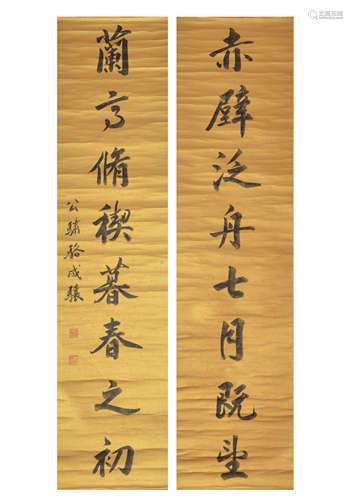 赤壁泛舟七月既望
蘭亭脩禊暮春之初
公驌駱成驤